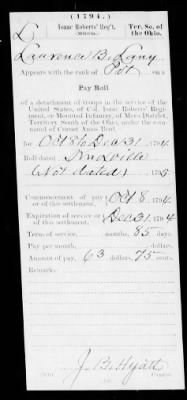 (1794.)
L Isaac Roberts' Reg't. Ter. So. of
the Ohio.
Laurence B. Lany
Appears with the rank of Pvt. on a
Pay Roll
of a detachment of troops in the service of the
United States, of Col. Isaac Roberts' Regi-
ment, or Mounted Infantry, of Mero District,
Territory South of the Ohio, under the com-
mand of Cornet Amos Bird.
for Oct 8 to Dec 31, 1794.
Roll dated Nashville
(Not dated), 1795.
Commencement of pay
or of this settlement, Oct 8, 1794.
Expiration of service
or of this settlement, Dec 31, 1794
Term of service, months, 85 days.
Pay per month, dollars.
Amount of pay, 63 dollars, 75 cents.
Remarks:
J. B. Hyatt
Copyist.